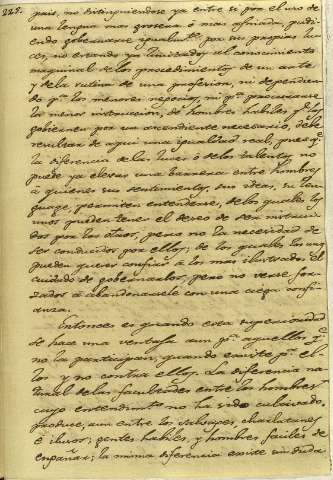 225.
pais, no distinguiendose ya entre si por el uso de
una lengua mas grosera ó mas afinada, pudi-
endo gobernarse igualmte. por sus propias lu-
ces, no estando ya limitados al conocimiento
maquinal de los procedimientos de un arte
y de la rutina de una profesion, ni dependien-
do pa. los menores negocios, ni pa. procurarse
la menor instruccion, de hombres habiles, qe. los
gobiernen por un ascendiente necesario, debe
resultar de aqui una igualdad real, pues qe.
la diferencia de las luces ó de los talentos no
puede ya elevar una barrera entre hombres
á quienes sus sentimientos, sus ideas, su len-
guage, permiten entenderse, de los quales los
unos pueden tener el deseo de ser instrui-
dos por los otros, pero no la necesidad de
ser conducidos por ellos; de los quales los unos
pueden querer confiar á los mas ilustrados el
cuidado de gobernarlos, pero no verse for-
zados á abandonarsele con una ciega confi-
anza.
Entonces es quando esta superioridad
se hace una ventaja aun pa. aquellos qe.
no la participan, quando existe pa. el-
los y no contra ellos. La diferencia na-
tural de las facultades entre los hombres
cuyo entendimto. no ha sido cultivado,
produce, aun entre los salvages, charlatanes
é ilusos; gentes habiles, y hombres faciles de
engañar; la misma diferencia existe sin duda